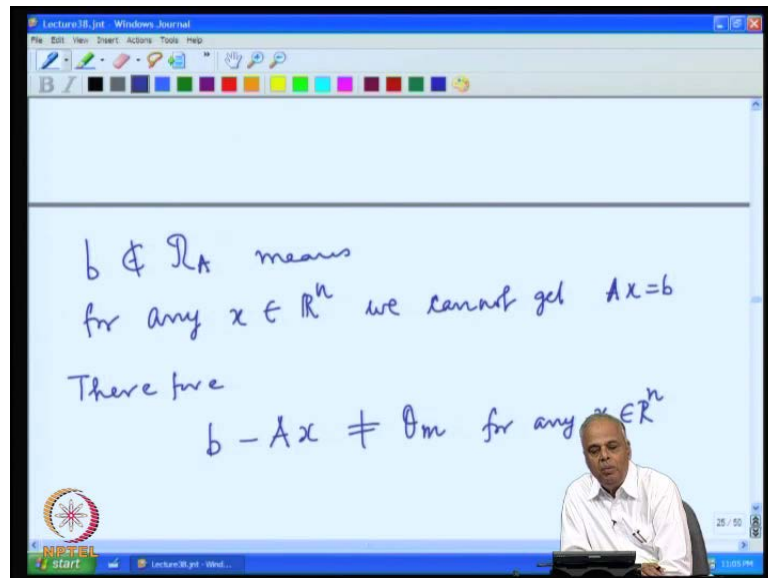 Lecture38.jnt - Windows Journal
File Edit View Insert Actions Tools Help
B I
b ∉ R_A means
for any x ∈ ℝ^n we cannot get Ax = b
Therefore
b - Ax ≠ θ_m for any x ∈ ℝ^n
25 / 50
NPTEL
start Lecture38.jnt - Wind... 11:05 PM